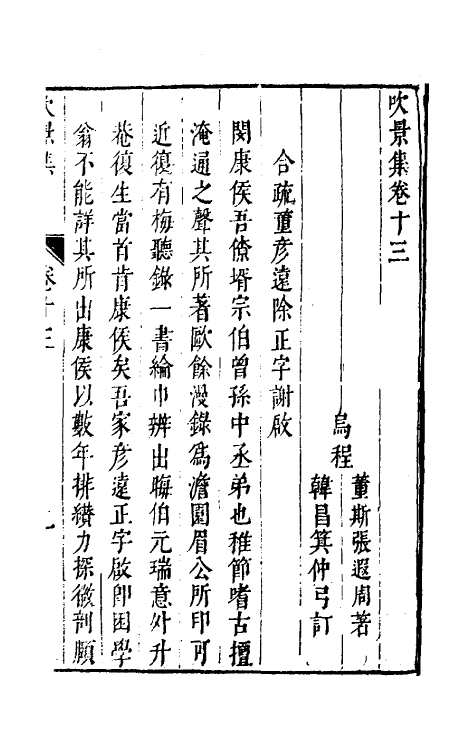 吹景集卷十三
烏程
董斯張遐周著
韓昌箕仲弓訂
合疏董彥遠除正字謝啟
閔康侯吾僚壻宗伯曾孫中丞弟也稚節嗜古擅
淹通之聲其所著歐餘漫錄爲澹園眉公所印可
近復有梅聽錄一書綸巾辨出晦伯元瑞意外升
菴復生當首肯康侯矣吾家彥遠正字啟卽困學
翁不能詳其所出康侯以數年排纘力探微剖願
吹景集
卷十三